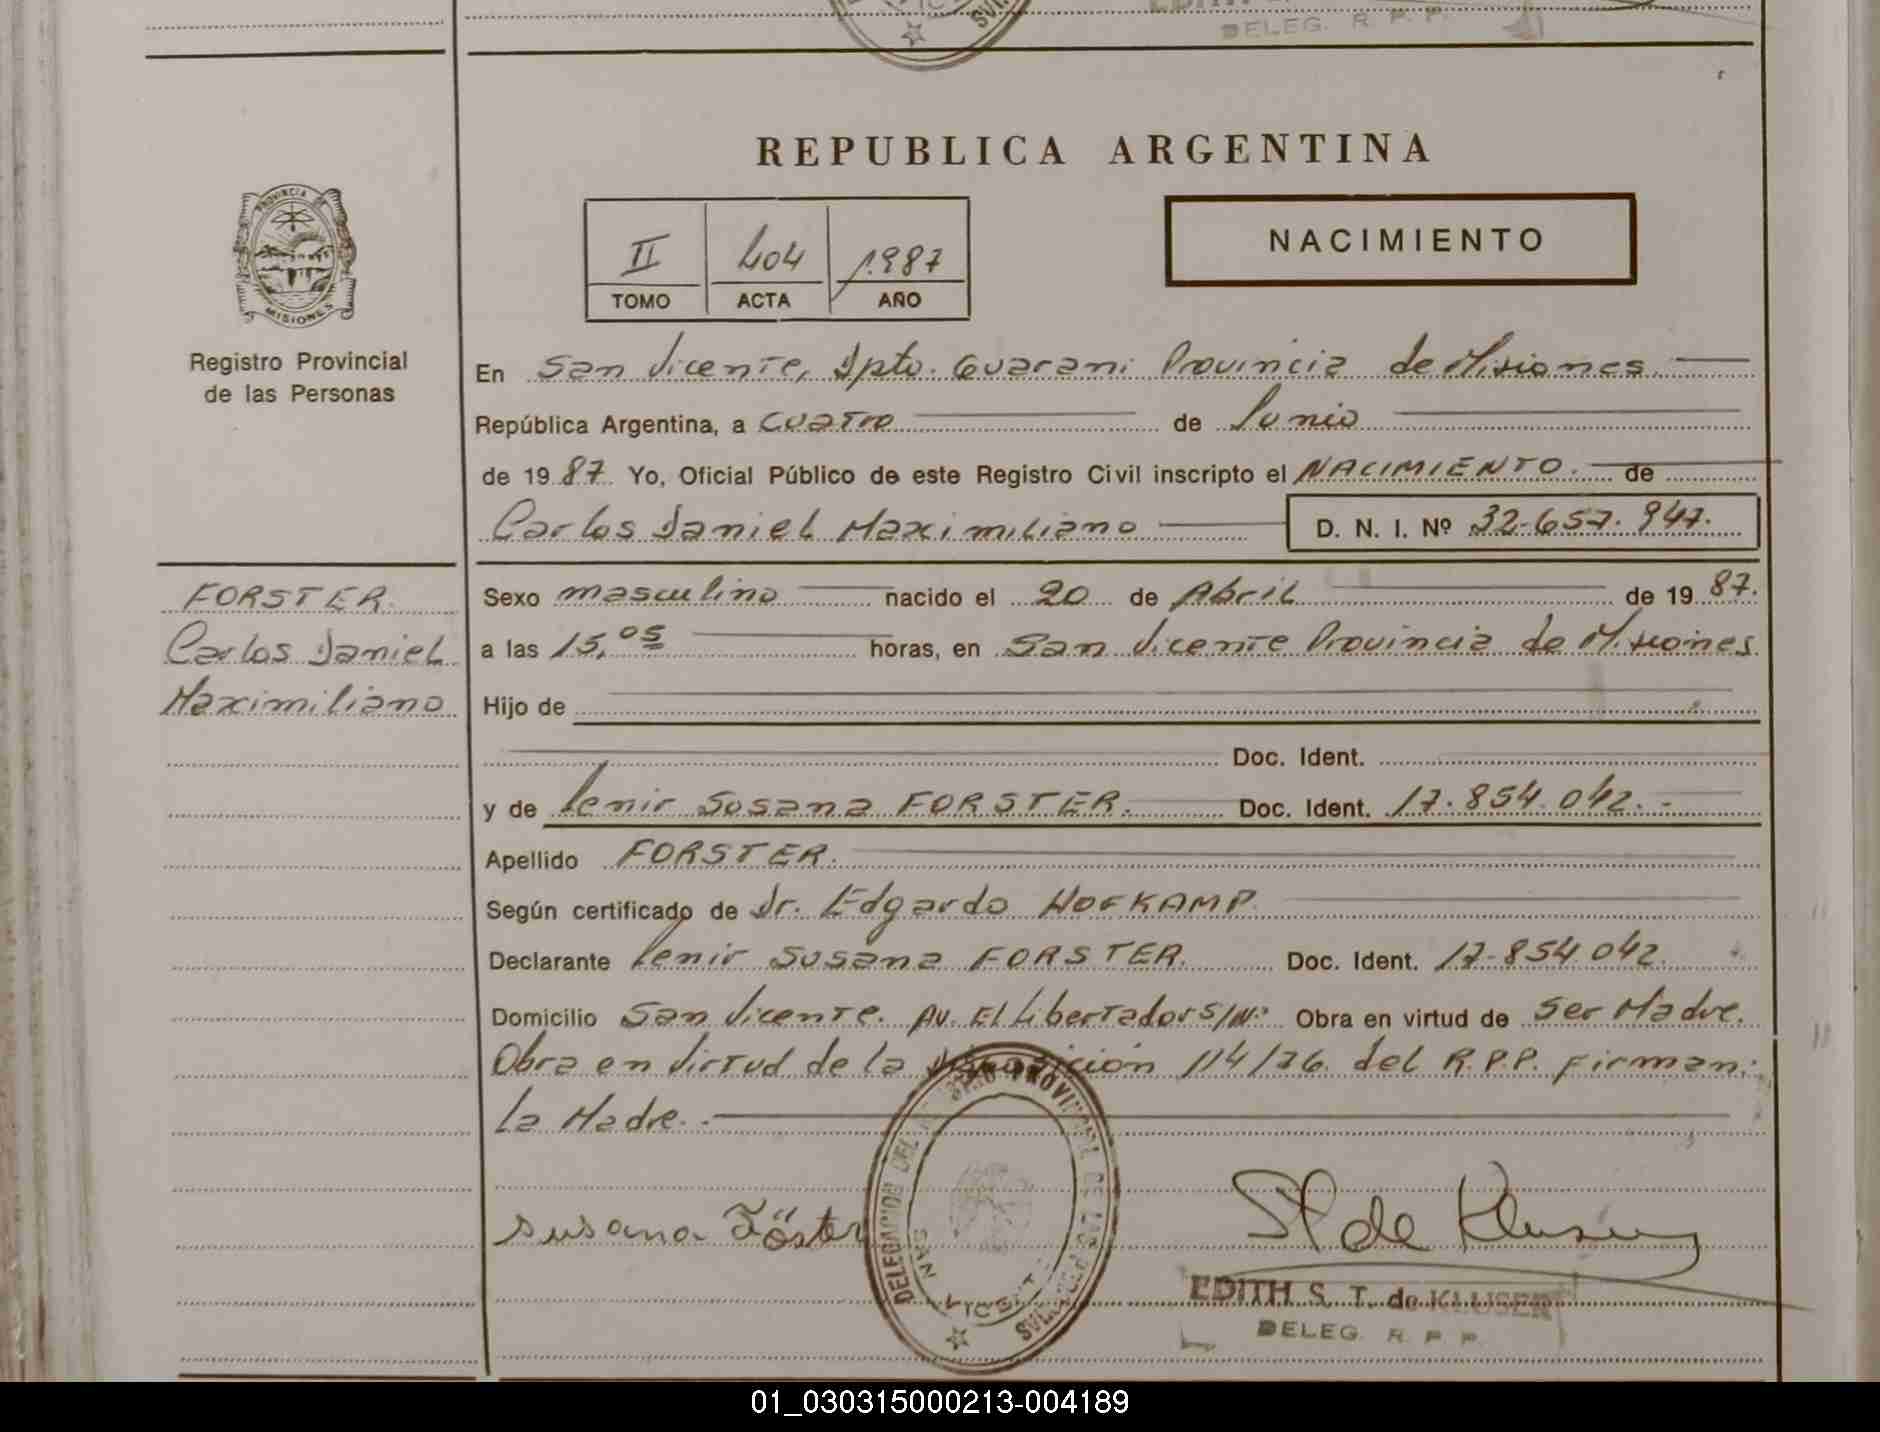 DELEG. R. P. P.
REPUBLICA ARGENTINA
PROVINCIA DE
MISIONES
Registro Provincial
de las Personas
II 404 1987
TOMO ACTA AÑO
NACIMIENTO
En San Vicente, Dpto. Guarani Provincia de Misiones
República Argentina, a cuatro de Junio
de 1987 Yo, Oficial Público de este Registro Civil inscripto el NACIMIENTO. de
Carlos Daniel Maximiliano D. N. I. Nº 32-657.947.
FORSTER
Carlos Daniel
Maximiliano
Sexo masculino nacido el 20 de Abril de 1987.
a las 15,05 horas, en San Vicente Provincia de Misiones
Hijo de
Doc. Ident.
y de Lenir Susana FORSTER. Doc. Ident. 17.854.042.-
Apellido FORSTER.
Según certificado de Dr. Edgardo HOFKAMP
Declarante Lenir Susana FORSTER. Doc. Ident. 17-854.042.
Domicilio San Vicente. Av. El Libertador S/Nº Obra en virtud de Ser Madre.
Obra en virtud de la Disposición 114/76. del R.P.P. Firman:
La Madre.-
Susana Föster
DELEGACION DEL REGISTRO PROVINCIAL DE LAS PERSONAS
SAN VICENTE
St de Kluser
EDITH S. T. de KLUSER
DELEG. R. P. P.
01_030315000213-004189